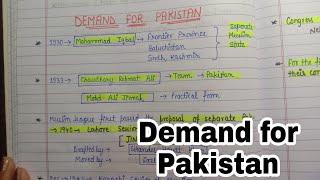 DEMAND FOR PAKISTAN
1930 → Mohammad Iqbal → Frontier Province
Baluchistan
Sindh, Kashmir
Seperate
Muslim
State
1933 → Choudhary Rehmat Ali → Term → Pakistan
Mohd. Ali Jinnah → Practical form
Muslim League first passed the proposal of separate
→ 1940 → Lahore
Drafted by → Sikandar
Moved by →
Congress
For the fi
their con
Demand for
Pakistan